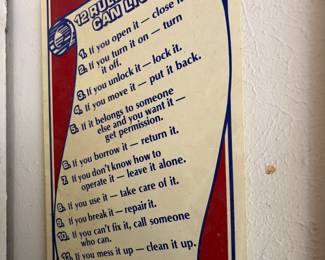 12 RUL
CAN LI
1. If you open it — close i
2. If you turn it on — turn
it off.
3. If you unlock it — lock it.
4. If you move it — put it back.
5. If it belongs to someone
else and you want it —
get permission.
6. If you borrow it — return it.
7. If you don't know how to
operate it — leave it alone.
8. If you use it — take care of it.
9. If you break it — repair it.
10. If you can't fix it, call someone
who can.
11. If you mess it up — clean it up.